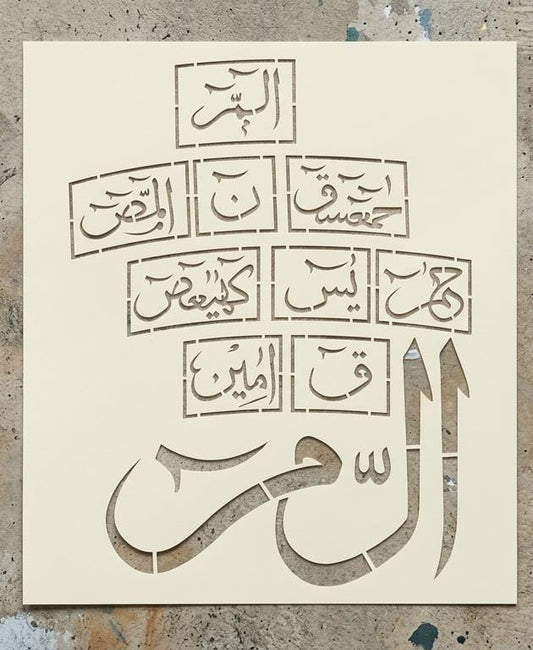 المّر
حمعسق ن المّص
حم يٰس كهيعص
ق امِيْن
الّمر